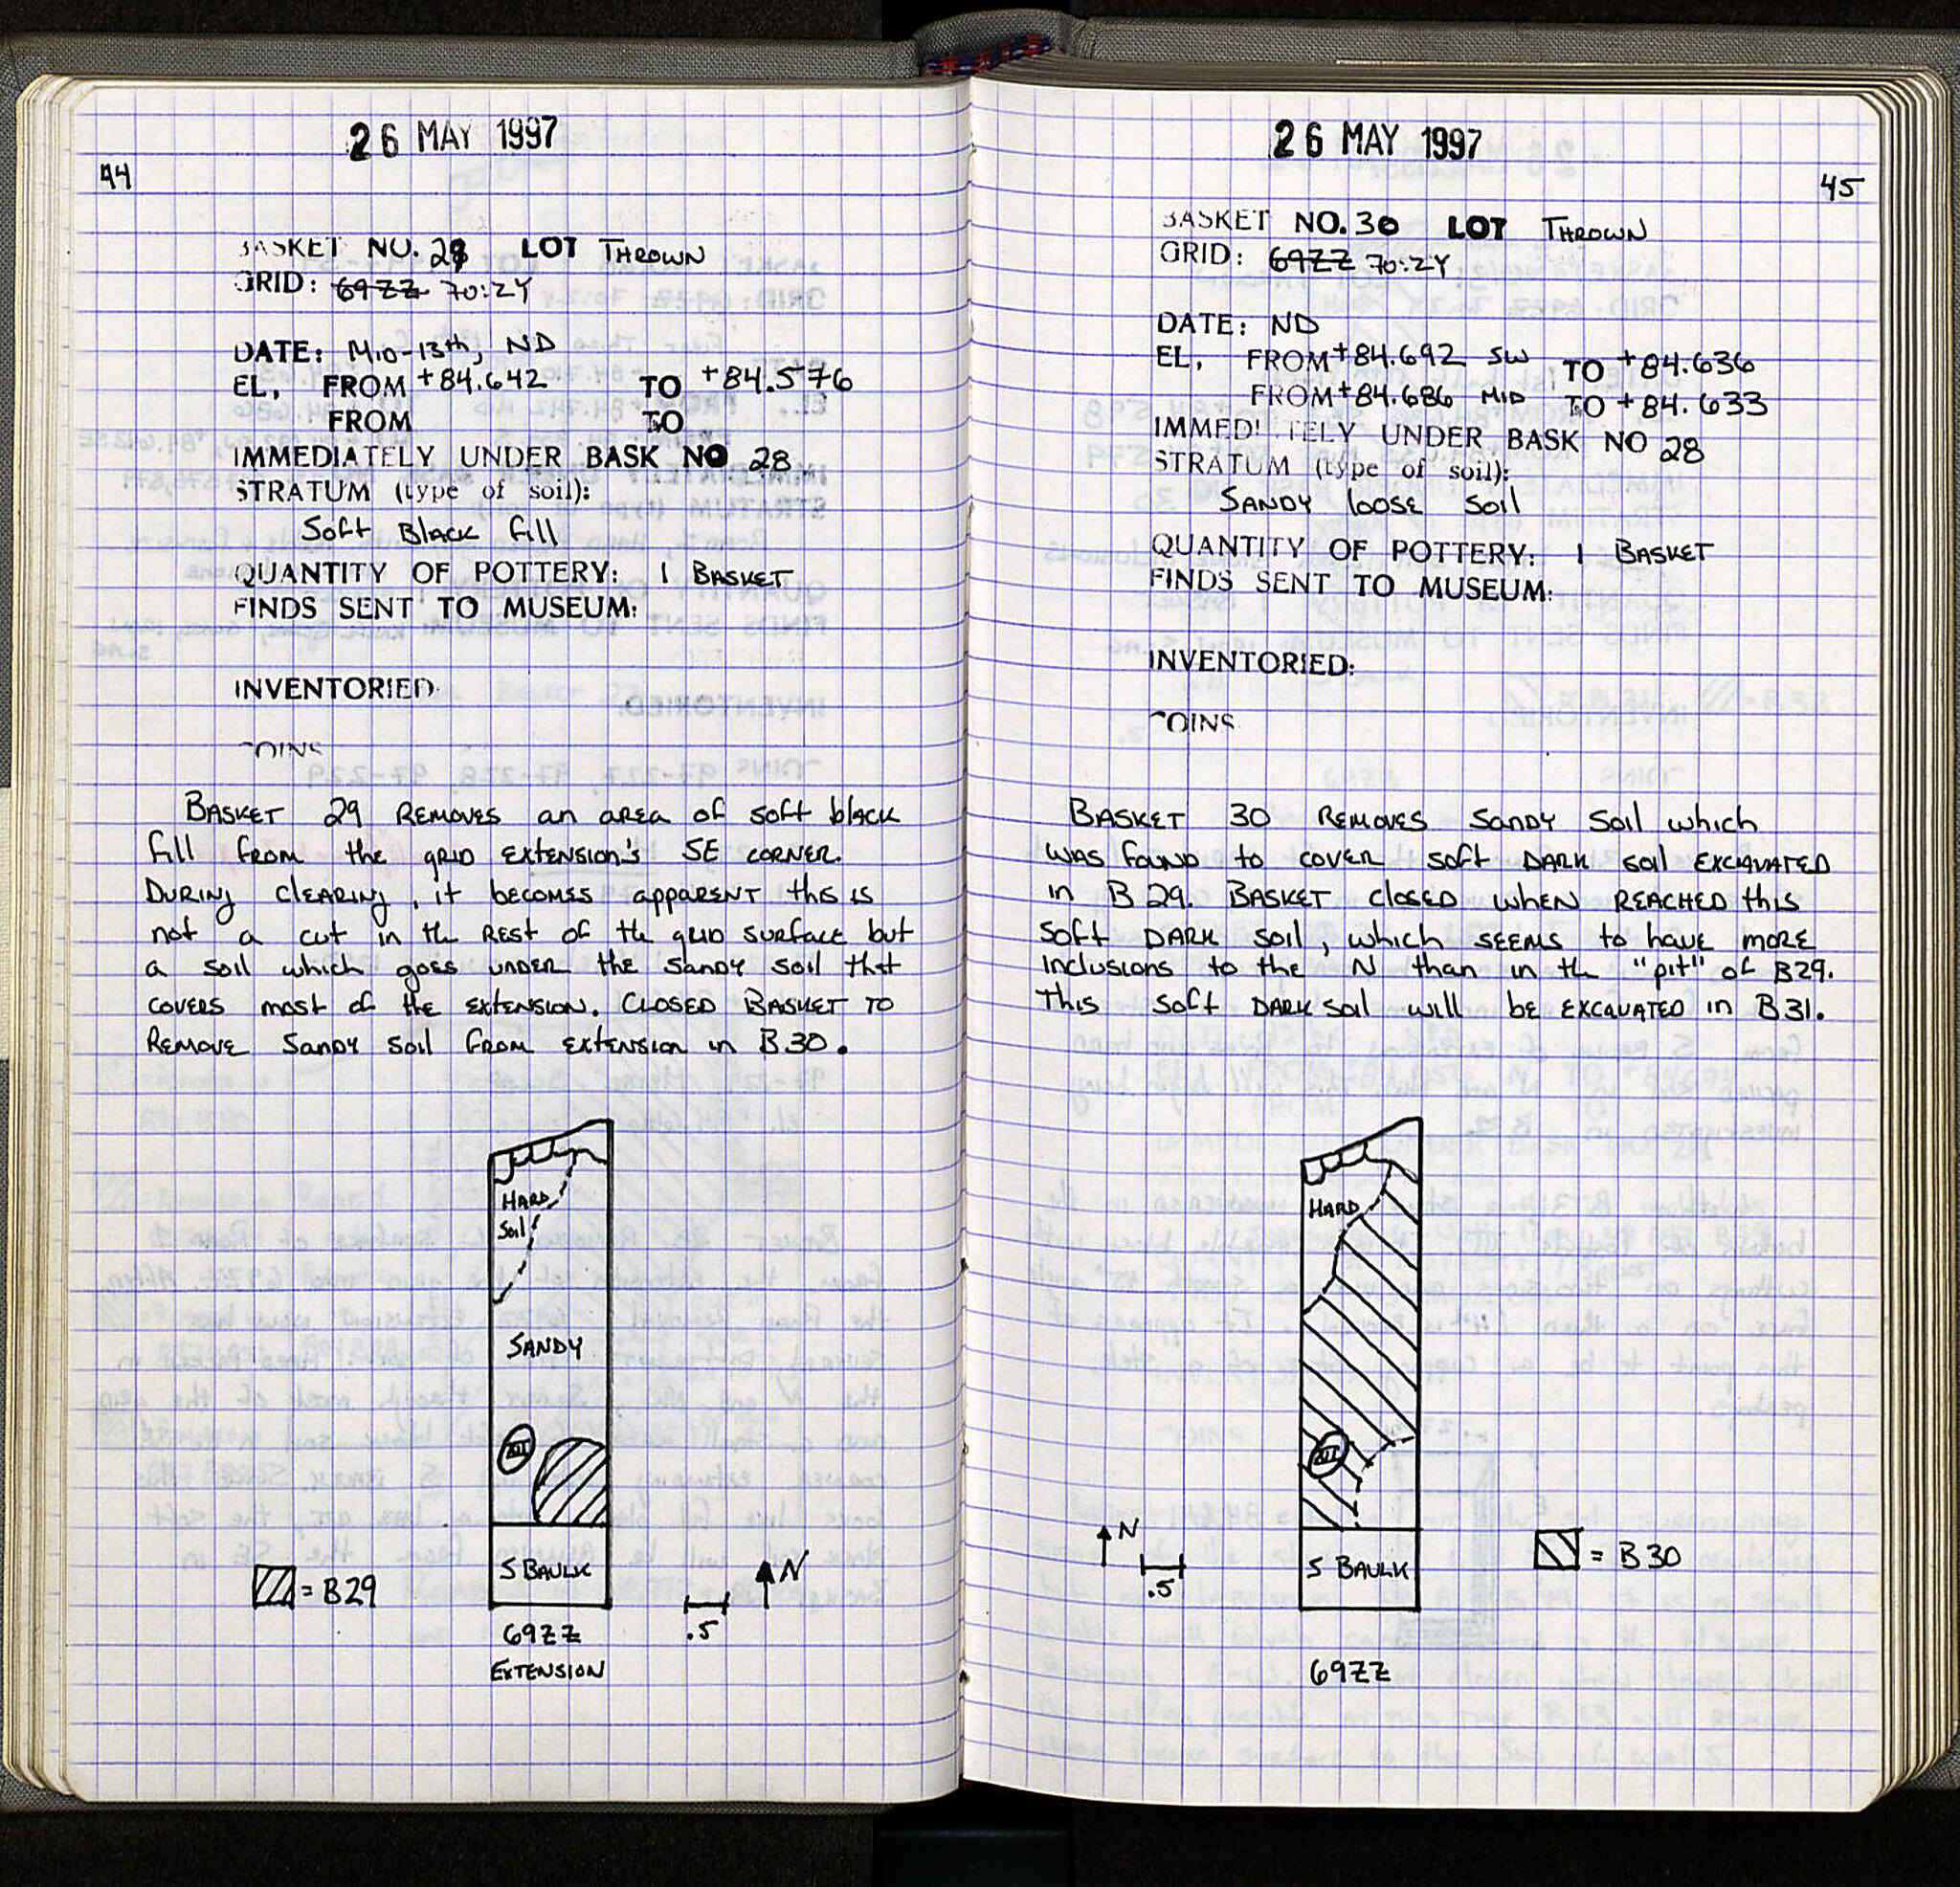 26 MAY 1997
44
BASKET NO. 29 LOT THROWN
GRID: 69ZZ 70:ZY
DATE: MID-13th, ND
EL, FROM +84.642 TO +84.576
FROM TO
IMMEDIATELY UNDER BASK NO 28
STRATUM (type of soil):
Soft Black fill
QUANTITY OF POTTERY: 1 BASKET
FINDS SENT TO MUSEUM:
INVENTORIED
COINS
BASKET 29 REMOVES an area of soft black
fill from the grid extension's SE corner.
During clearing, it becomes apparent this is
not a cut in the rest of the grid surface but
a soil which goes under the sandy soil that
covers most of the extension. Closed Basket to
Remove Sandy soil from extension in B30.
HARD
Soil
SANDY
XII
S BAULK
= B29
69ZZ
EXTENSION
.5
N
26 MAY 1997
45
BASKET NO. 30 LOT THROWN
GRID: 69ZZ 70:ZY
DATE: ND
EL, FROM +84.692 SW TO +84.636
FROM +84.686 MID TO +84.633
IMMEDIATELY UNDER BASK NO 28
STRATUM (type of soil):
SANDY loose soil
QUANTITY OF POTTERY: 1 BASKET
FINDS SENT TO MUSEUM:
INVENTORIED:
COINS
BASKET 30 REMOVES Sandy Soil which
was found to cover soft DARK soil EXCAVATED
in B29. BASKET closed when REACHED this
soft DARK soil, which seems to have more
inclusions to the N than in the "pit" of B29.
This soft DARK soil will be EXCAVATED in B31.
HARD
XII
N
.5
S BAULK
= B30
69ZZ